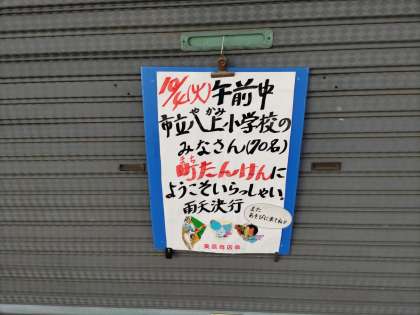 10/4(火)午前中
市立八上小学校の
やかみ
みなさん(70名)
町たんけんに
まち
ようこそいらっしゃい!
雨天決行
また
あそびに来てね♡